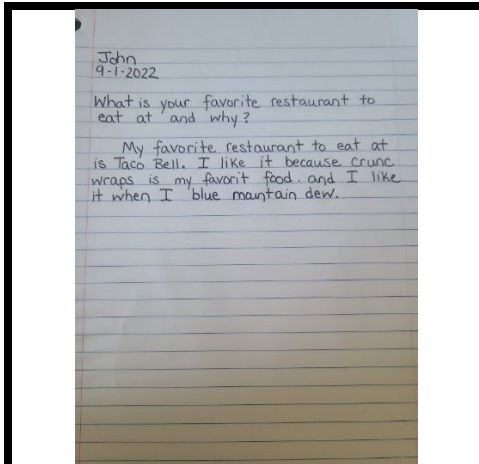 John
9-1-2022
What is your favorite restaurant to
eat at and why?
My favorite restaurant to eat at
is Taco Bell. I like it because crunc
wraps is my favorit food. and I like
it when I blue mauntain dew.